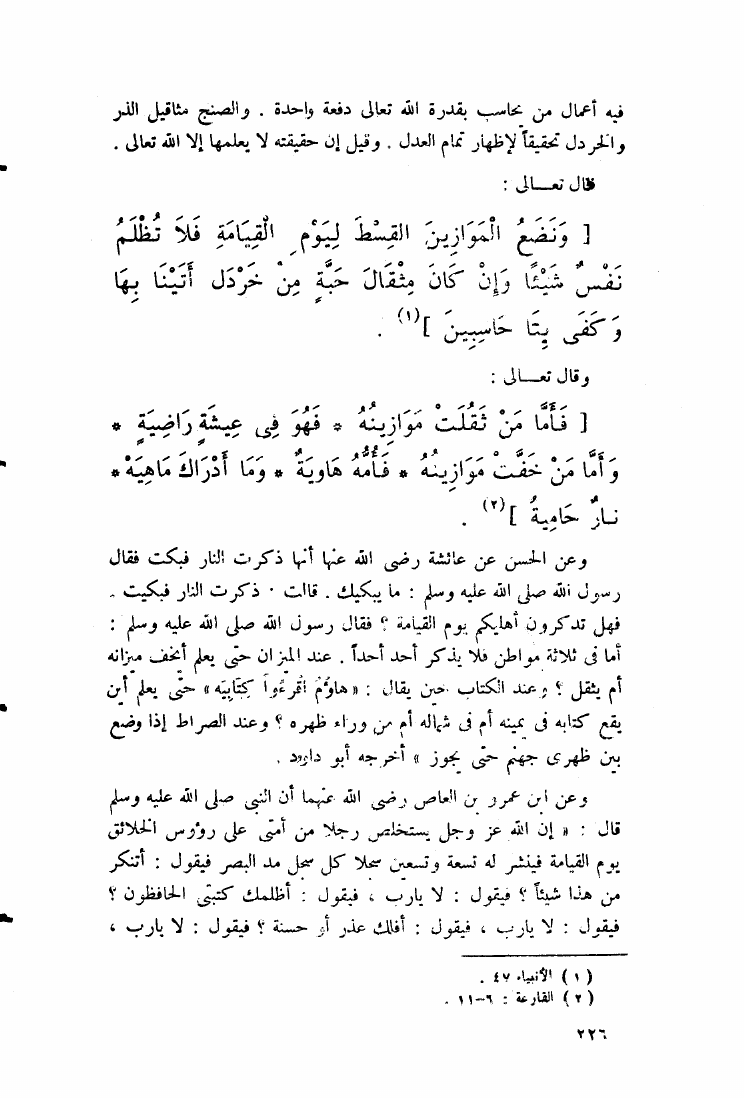 فيه أعمال من يحاسب بقدرة الله تعالى دفعة واحدة . والصنج مثاقيل الذر
والخردل تحقيقاً لإظهار تمام العدل . وقيل إن حقيقته لا يعلمها إلا الله تعالى .
قال تعــالى :
[ وَنَضَعُ الْمَوَازِينَ القِسْطَ لِيَوْمِ الْقِيَامَةِ فَلاَ تُظْلَمُ
نَفْسٌ شَيْئًا وَإِنْ كَانَ مِثْقَالَ حَبَّةٍ مِنْ خَرْدَل أَتَيْنَا بِهَا
وَكَفَى بِنَا حَاسِبِينَ ](١) .
وقال تعــالى :
[ فَأَمَّا مَنْ ثَقُلَتْ مَوَازِينُهُ * فَهُوَ فِى عِيشَةٍ رَاضِيَةٍ *
وَأَمَّا مَنْ خَفَّتْ مَوَازِينُهُ * فَأُمُّهُ هَاوِيَةٌ * وَمَا أَدْرَاكَ مَاهِيَهْ *
نارٌ حَامِيةُ ](٢) .
وعن الحسن عن عائشة رضى الله عنها أنها ذكرت النار فبكت فقال
رسول الله صلى الله عليه وسلم : ما يبكيك . قالت . ذكرت النار فبكيت .
فهل تذكرون أهليكم يوم القيامة ؟ فقال رسول الله صلى الله عليه وسلم :
أما فى ثلاثة مواطن فلا يذكر أحد أحداً . عند الميزان حتى يعلم أيخف ميزانه
أم يثقل ؟ وعند الكتاب حين يقال : « هاؤم اقرءوا كتابيه » حتى يعلم أين
يقع كتابه فى يمينه أم فى شماله أم من وراء ظهره ؟ وعند الصراط إذا وضع
بين ظهرى جهنم حتى يجوز » أخرجه أبو داود .
وعن ابن عمرو بن العاص رضى الله عنهما أن النبى صلى الله عليه وسلم
قال : « إن الله عز وجل يستخلص رجلا من أمتى على رؤوس الخلائق
يوم القيامة فينشر له تسعة وتسعين سجلا كل سجل مد البصر فيقول : أتنكر
من هذا شيئاً ؟ فيقول : لا يارب ، فيقول : أظلمك كتبتى الحافظون ؟
فيقول : لا يارب ، فيقول : أفلك عذر أو حسنة ؟ فيقول : لا يارب ،
( ١ ) الأنبياء ٤٧ .
( ٢ ) القارعة : ٦–١١ .
٢٢٦